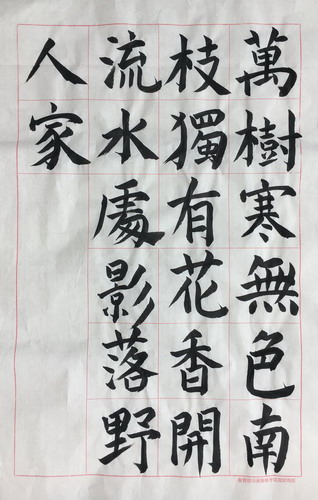 萬樹寒無色南
枝獨有花香開
流水處影落野
人家